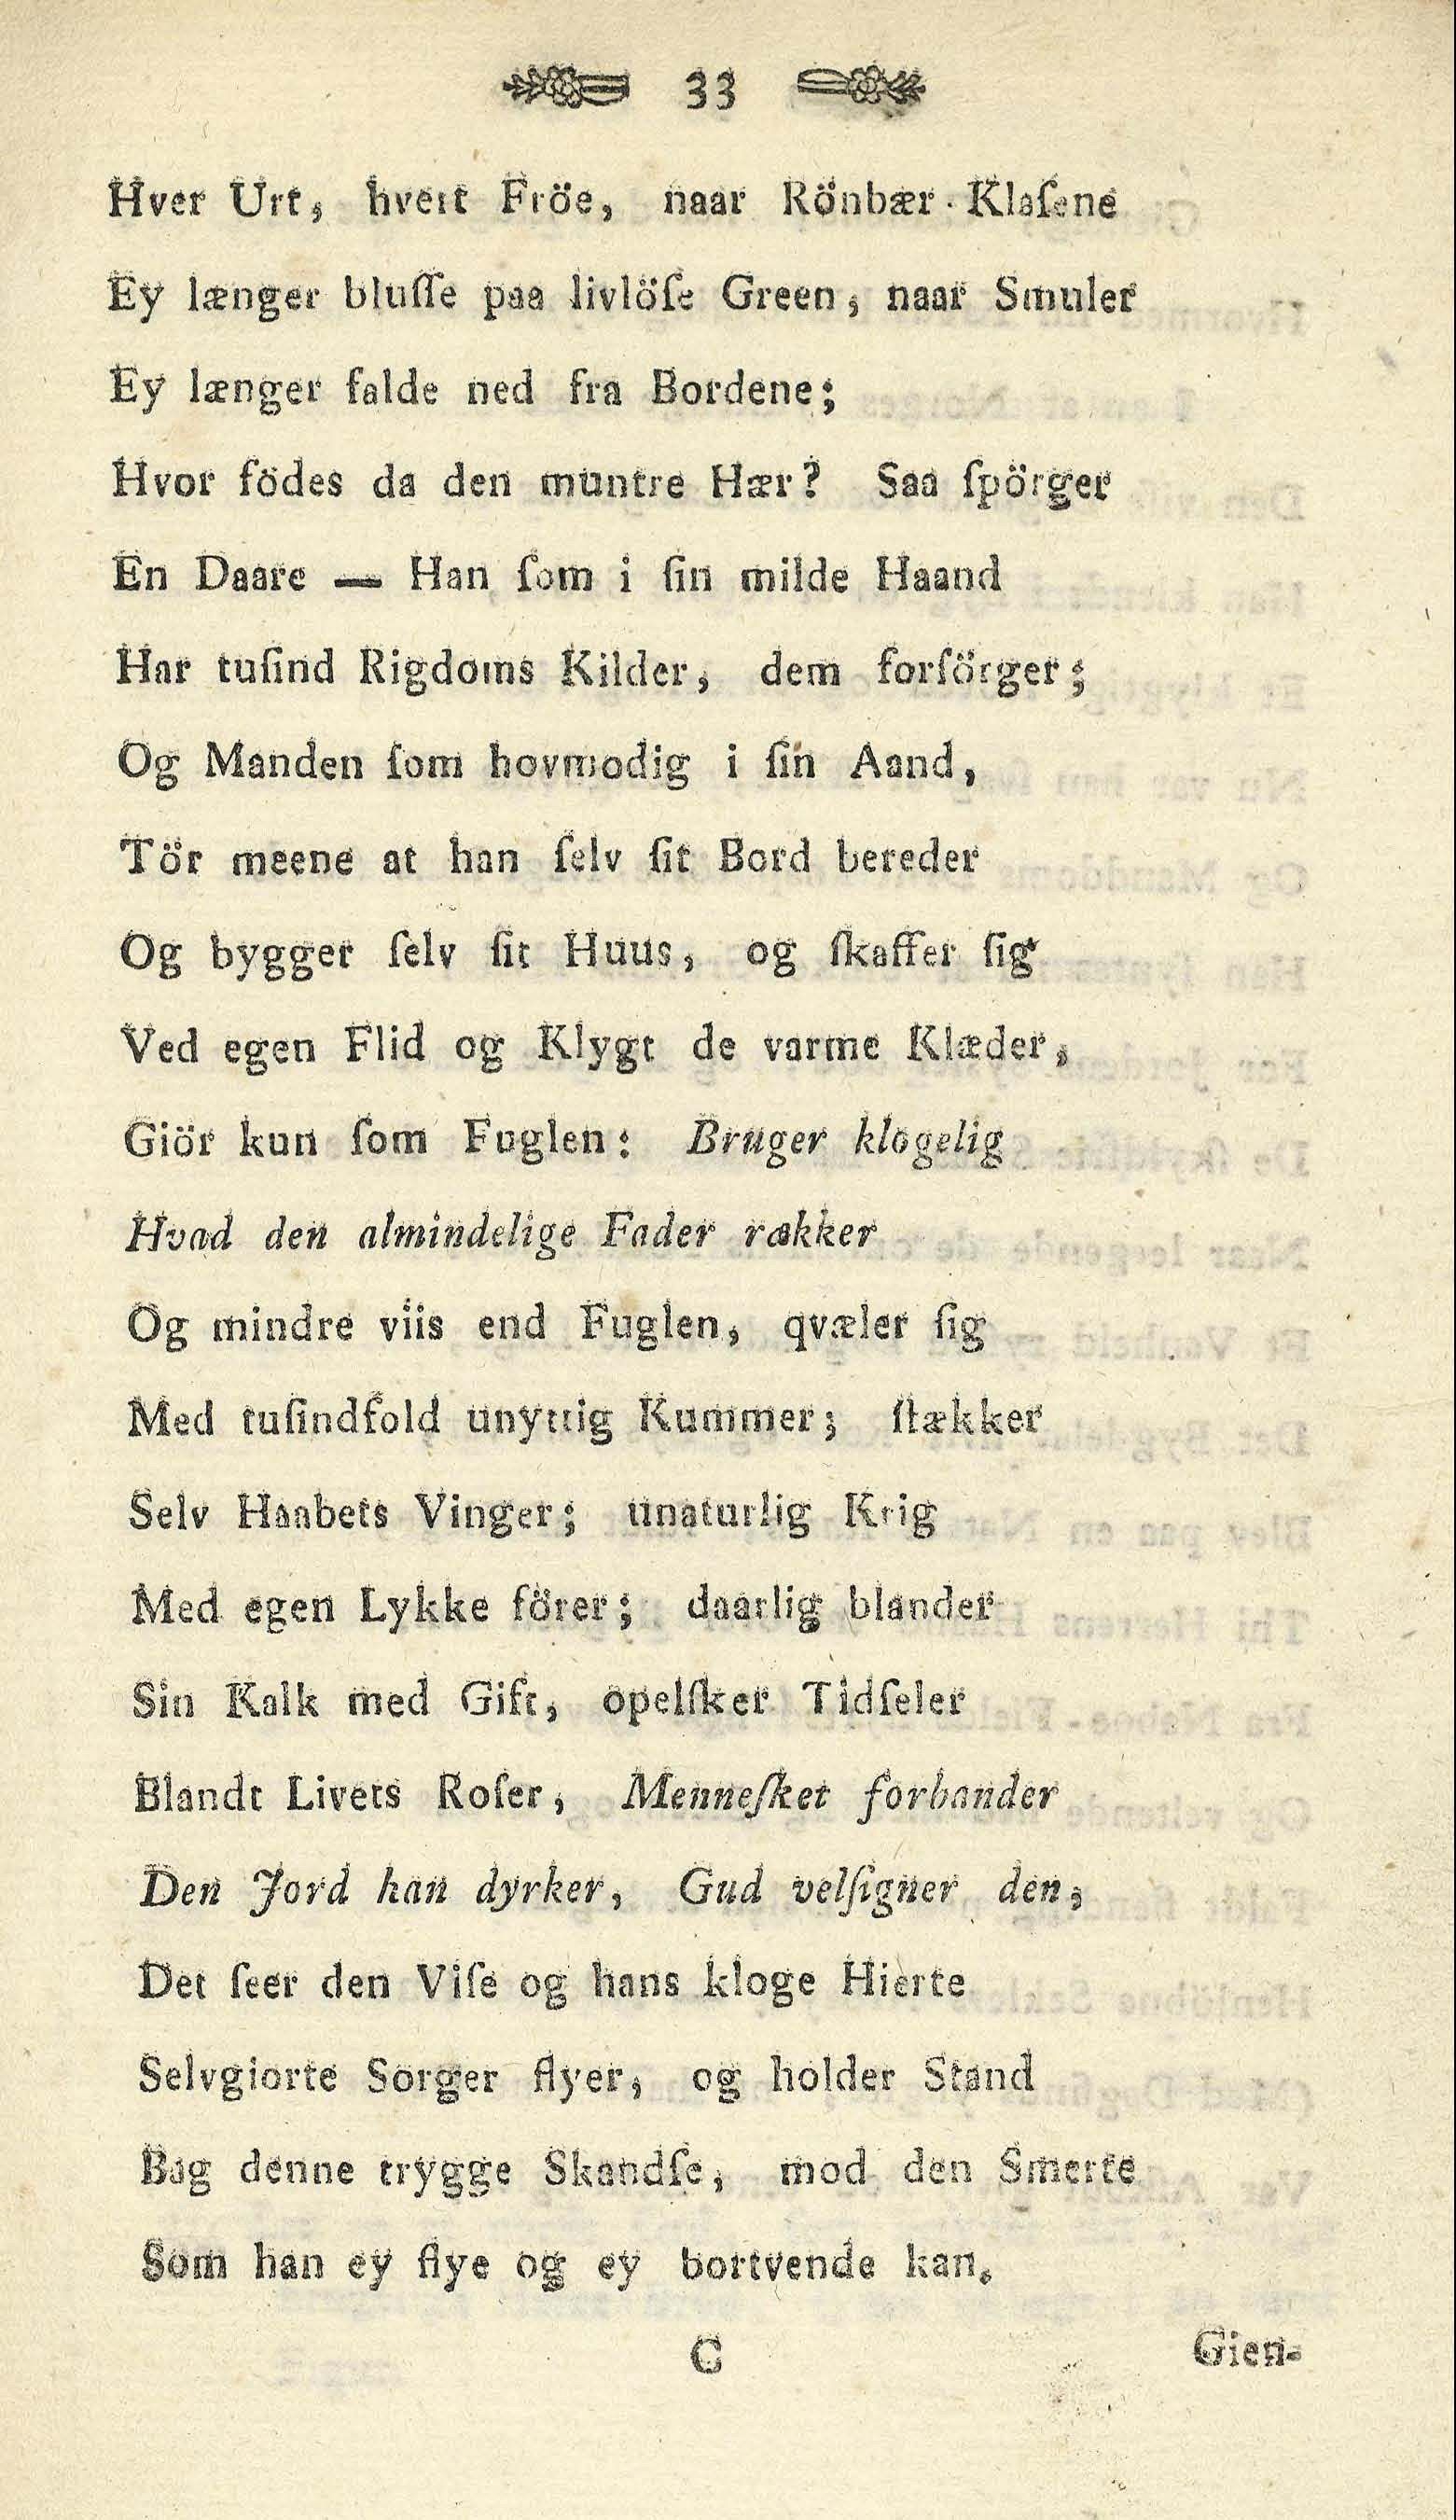 33
Hver Urt, hvert Fröe, naar Rönbær-Klaſene
Ey længer bluſſe paa livlöſe Green, naar Smuler
Ey længer falde ned fra Bordene;
Hvor födes da den muntre Hær? Saa ſpörger
En Daare — Han ſom i ſin milde Haand
Har tuſind Rigdoms Kilder, dem forſörger;
Og Manden ſom hovmodig i ſin Aand,
Tör meene at han ſelv ſit Bord bereder
Og bygger ſelv ſit Huus, og ſkaffer ſig
Ved egen Flid og Klygt de varme Klæder,
Giör kun ſom Fuglen: Bruger klogelig
Hvad den almindelige Fader rækker
Og mindre viis end Fuglen, qvæler ſig
Med tuſindfold unyttig Kummer; ſtækker
Selv Haabets Vinger; unaturlig Krig
Med egen Lykke förer; daarlig blander
Sin Kalk med Gift, opelſker Tidſeler
Blandt Livets Roſer, Menneſket forbander
Den Jord han dyrker, Gud velſigner den,
Det ſeer den Viſe og hans kloge Hierte
Selvgiorte Sorger flyer, og holder Stand
Bag denne trygge Skandſe, mod den Smerte
Som han ey flye og ey bortvende kan.
C Gien-